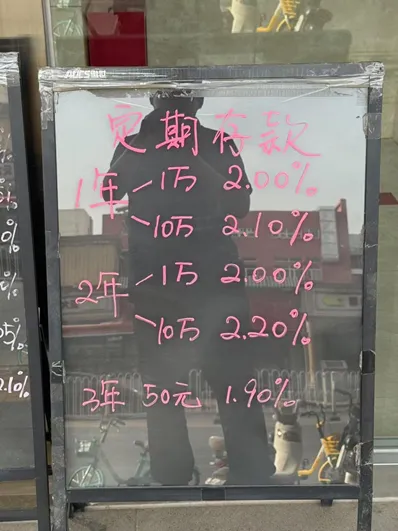 定期存款
1年 1万 2.00%
10万 2.10%
2年 1万 2.00%
10万 2.20%
3年·50元 1.90%